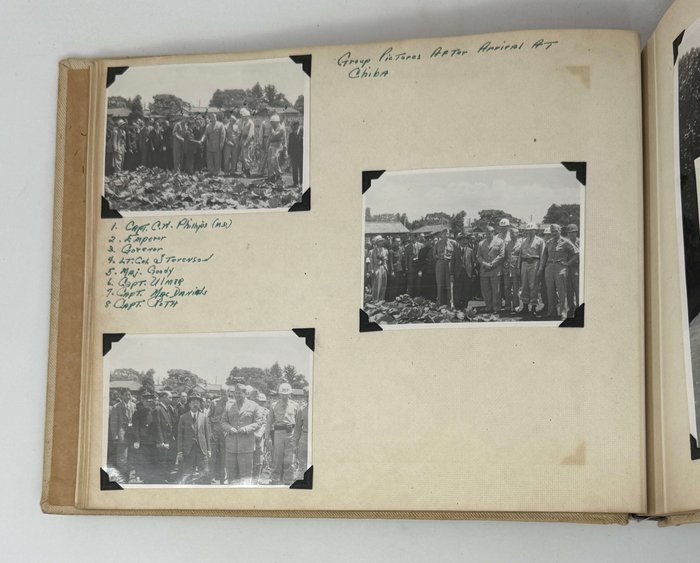 Group Pictures After Arrival At
Chiba
1. Capt. C.W. Phillips (M.D.)
2. Emperor
3. Govenor
4. Lt. Col Stevenson
5. Maj. Goody
6 Capt. Ulmer
7. Capt. MacDaniels
8 Capt.